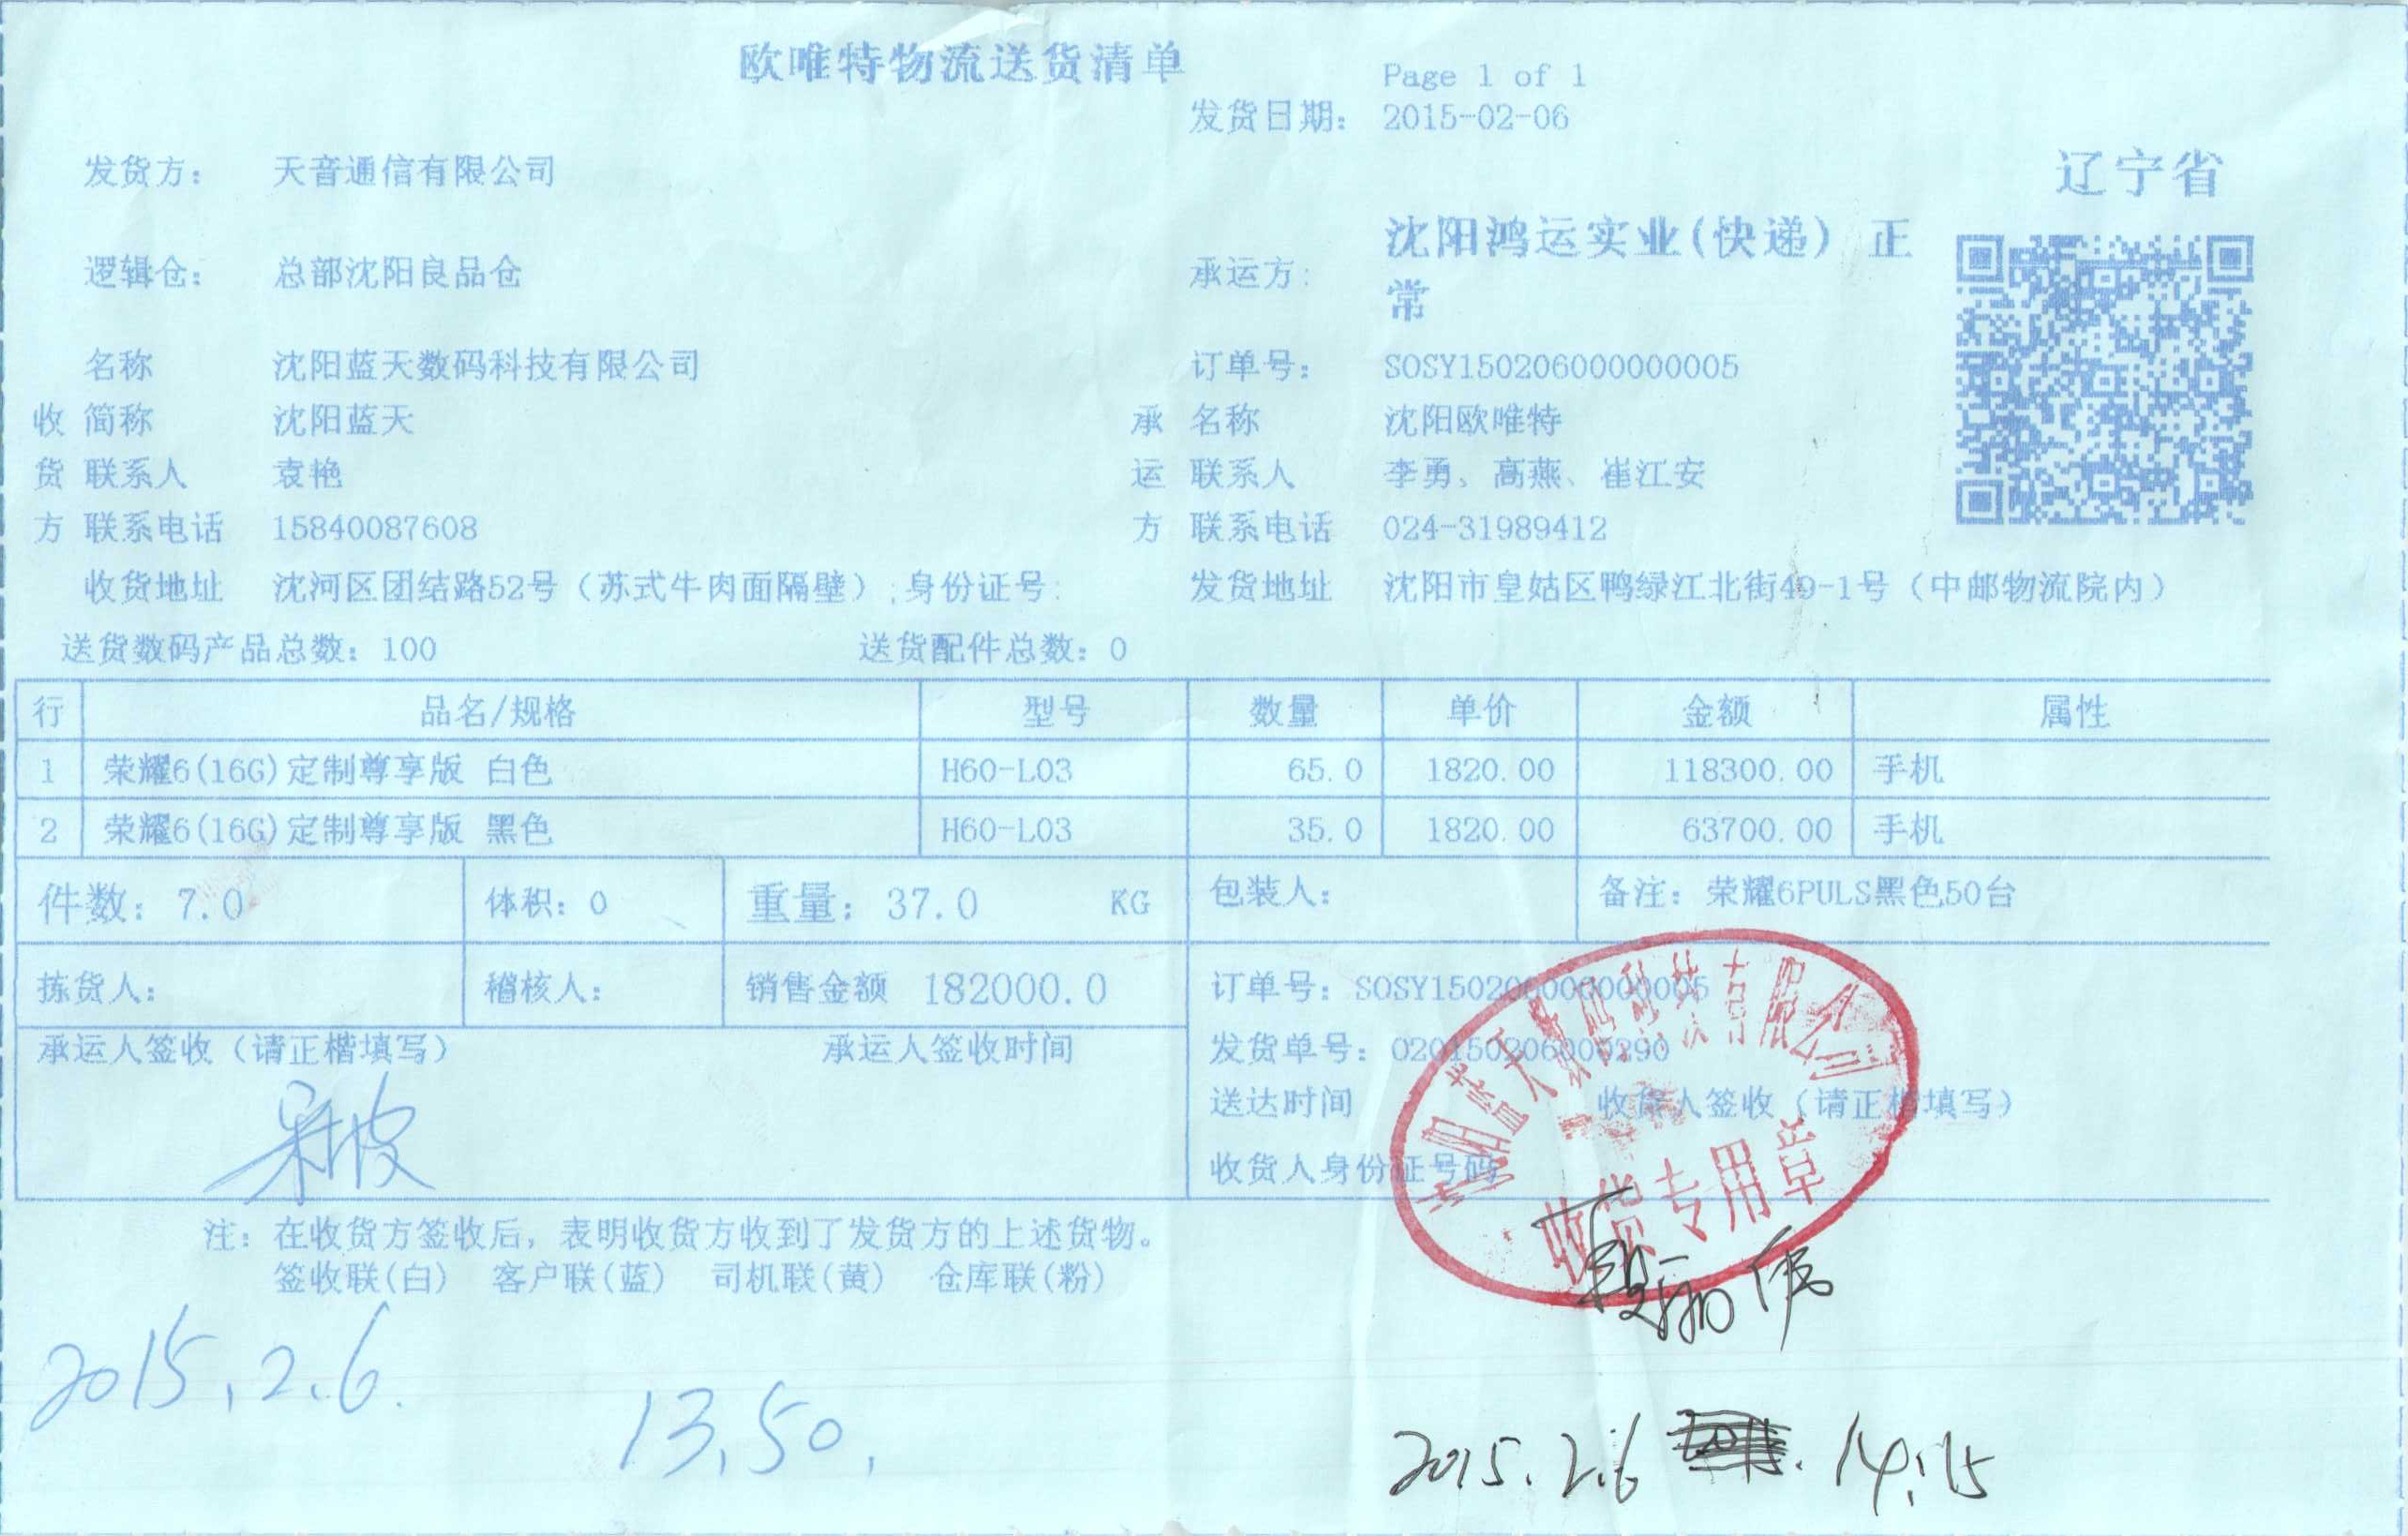 欧唯特物流送货清单
Page 1 of 1
发货日期： 2015-02-06
发货方： 天音通信有限公司
辽宁省
逻辑仓： 总部沈阳良品仓
承运方： 沈阳鸿运实业(快递) 正常
名称 沈阳蓝天数码科技有限公司 订单号： SOSY150206000000005
收 简称 沈阳蓝天 承 名称 沈阳欧唯特
货 联系人 袁艳 运 联系人 李勇、高燕、崔江安
方 联系电话 15840087608 方 联系电话 024-31989412
收货地址 沈河区团结路52号（苏式牛肉面隔壁）;身份证号: 发货地址 沈阳市皇姑区鸭绿江北街49-1号（中邮物流院内）
送货数码产品总数：100 送货配件总数：0
行 品名/规格 型号 数量 单价 金额 属性
1 荣耀6(16G)定制尊享版 白色 H60-L03 65.0 1820.00 118300.00 手机
2 荣耀6(16G)定制尊享版 黑色 H60-L03 35.0 1820.00 63700.00 手机
件数：7.0 体积：0 重量：37.0 KG 包装人： 备注：荣耀6PULS黑色50台
拣货人： 稽核人： 销售金额 182000.0 订单号：SOSY150206000000005
承运人签收（请正楷填写） 承运人签收时间 发货单号：020150206000290
送达时间 收货人签收（请正楷填写）
收货人身份证号码
沈阳蓝天数码科技有限公司
收货专用章
注：在收货方签收后，表明收货方收到了发货方的上述货物。
签收联(白) 客户联(蓝) 司机联(黄) 仓库联(粉)
2015.2.6.
13.50.
2015.2.6 14:15